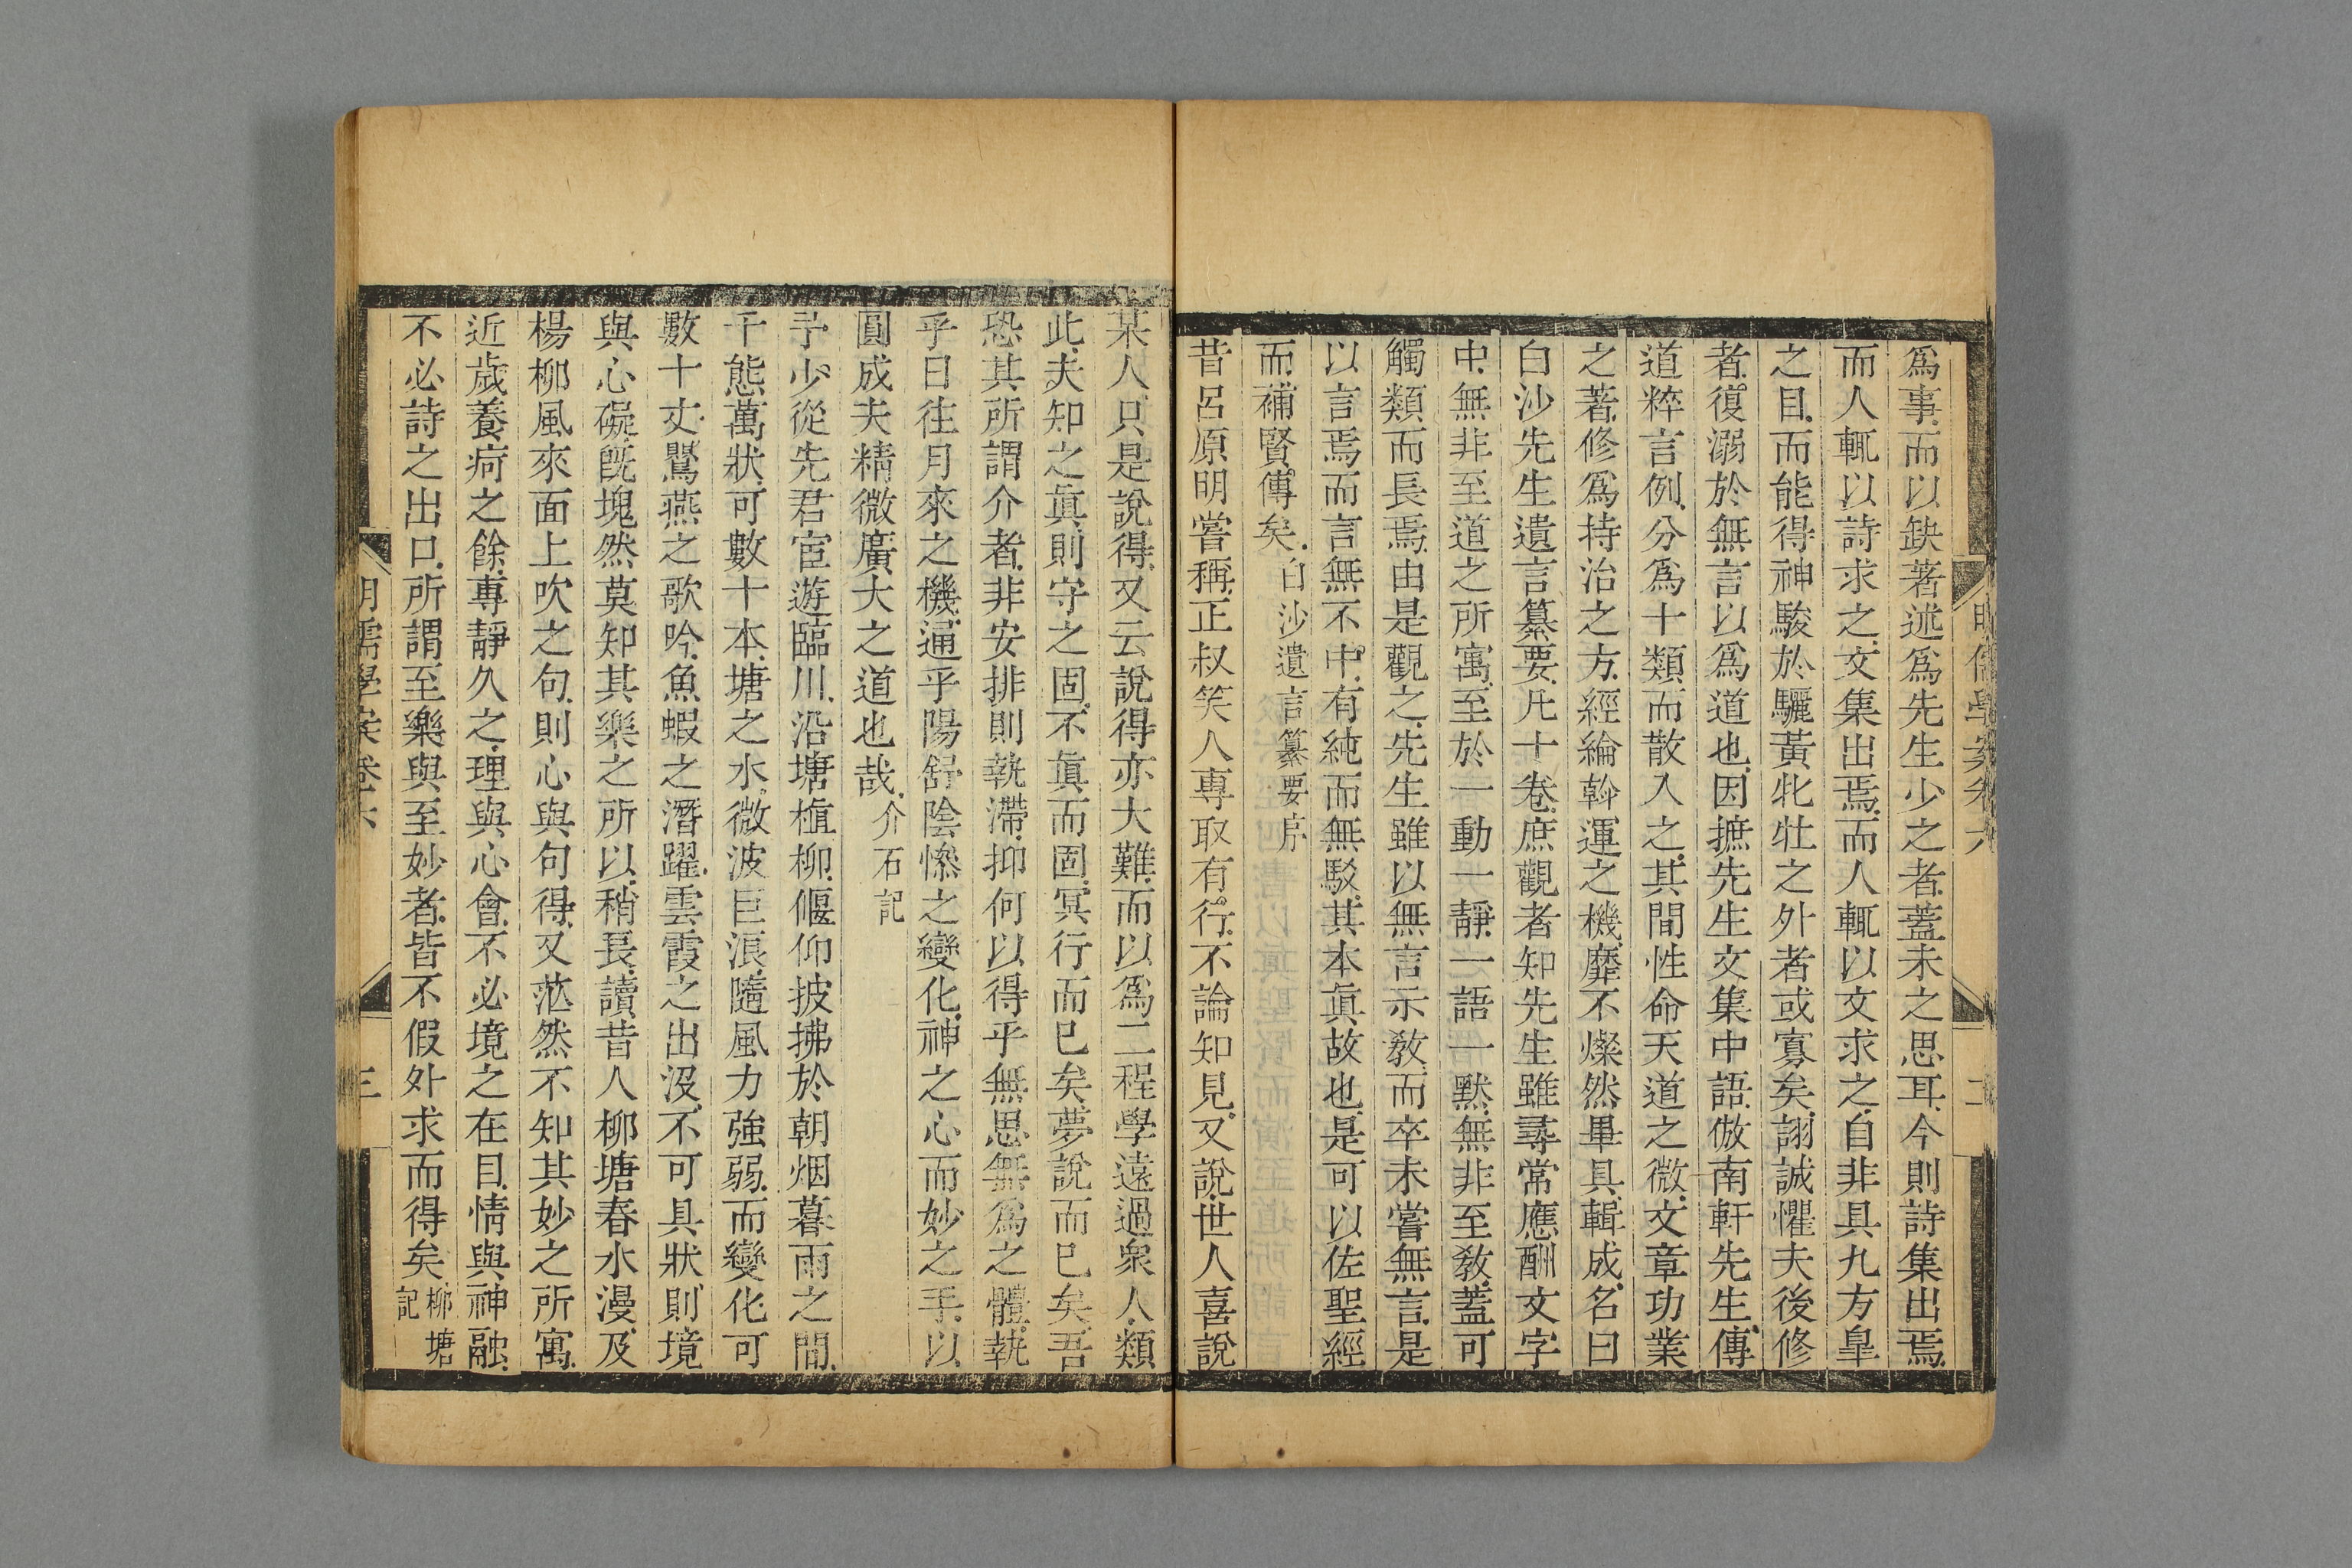 爲事而以缺著述爲先生少之者蓋未之思耳今則詩集出焉
而人輒以詩求之文集出焉而人輒以文求之自非具九方臯
之目而能得神駿於驪黃牝牡之外者或寡矣詡誠懼夫後修
者復溺於無言以爲道也因摭先生文集中語倣南軒先生傳
道粹言例分爲十類而散入之其間性命天道之微文章功業
之著修爲持治之方經綸斡運之機靡不燦然畢具輯成名曰
白沙先生遺言纂要凡十卷庶觀者知先生雖尋常應酬文字
中無非至道之所寓至於一動一靜一語一默無非至敎蓋可
觸類而長焉由是觀之先生雖以無言示敎而卒未嘗無言是
以言焉而言無不中有純而無駁其本眞故也是可以佐聖經
而補賢傳矣白沙遺言纂要序
昔呂原明嘗稱正叔笑人專取有行不論知見又說世人喜說
某人只是說得又云說得亦大難而以爲二程學遠過衆人類
此夫知之眞則守之固不眞而固冥行而已矣夢說而已矣吾
恐其所謂介者非安排則執滯抑何以得乎無思無爲之體執
乎日往月來之機通乎陽舒陰慘之變化神之心而妙之手以
圓成夫精微廣大之道也哉介石記
予少從先君宦遊臨川沿塘植柳偃仰披拂於朝烟暮雨之間
千態萬狀可數十本塘之水微波巨浪隨風力強弱而變化可
數十丈鸎燕之歌吟魚蝦之潛躍雲霞之出沒不可具狀則境
與心礙旣塊然莫知其樂之所以稍長讀昔人柳塘春水漫及
楊柳風來面上吹之句則心與句得又茫然不知其妙之所寓
近歲養痾之餘專靜久之理與心會不必境之在目情與神融
不必詩之出口所謂至樂與至妙者皆不假外求而得矣柳塘記
明儒學案卷六
三